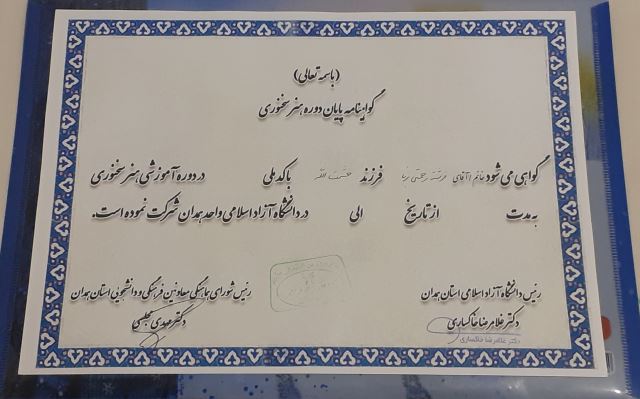 (باسمه تعالی)
گواهینامه پایان دوره هنر سخنوری
گواهی می شود خانم / آقای فرزند حشمت الله با کد ملی در دوره آموزشی هنر سخنوری
به مدت از تاریخ الی در دانشگاه آزاد اسلامی واحد همدان شرکت نموده است.
رئیس دانشگاه آزاد اسلامی استان همدان
دکتر غلامرضا خاکساری
دکتر غلامرضا خاکساری
رئیس شورای هماهنگی معاونین فرهنگی و دانشجویی استان همدان
دکتر مهدی مجلسی